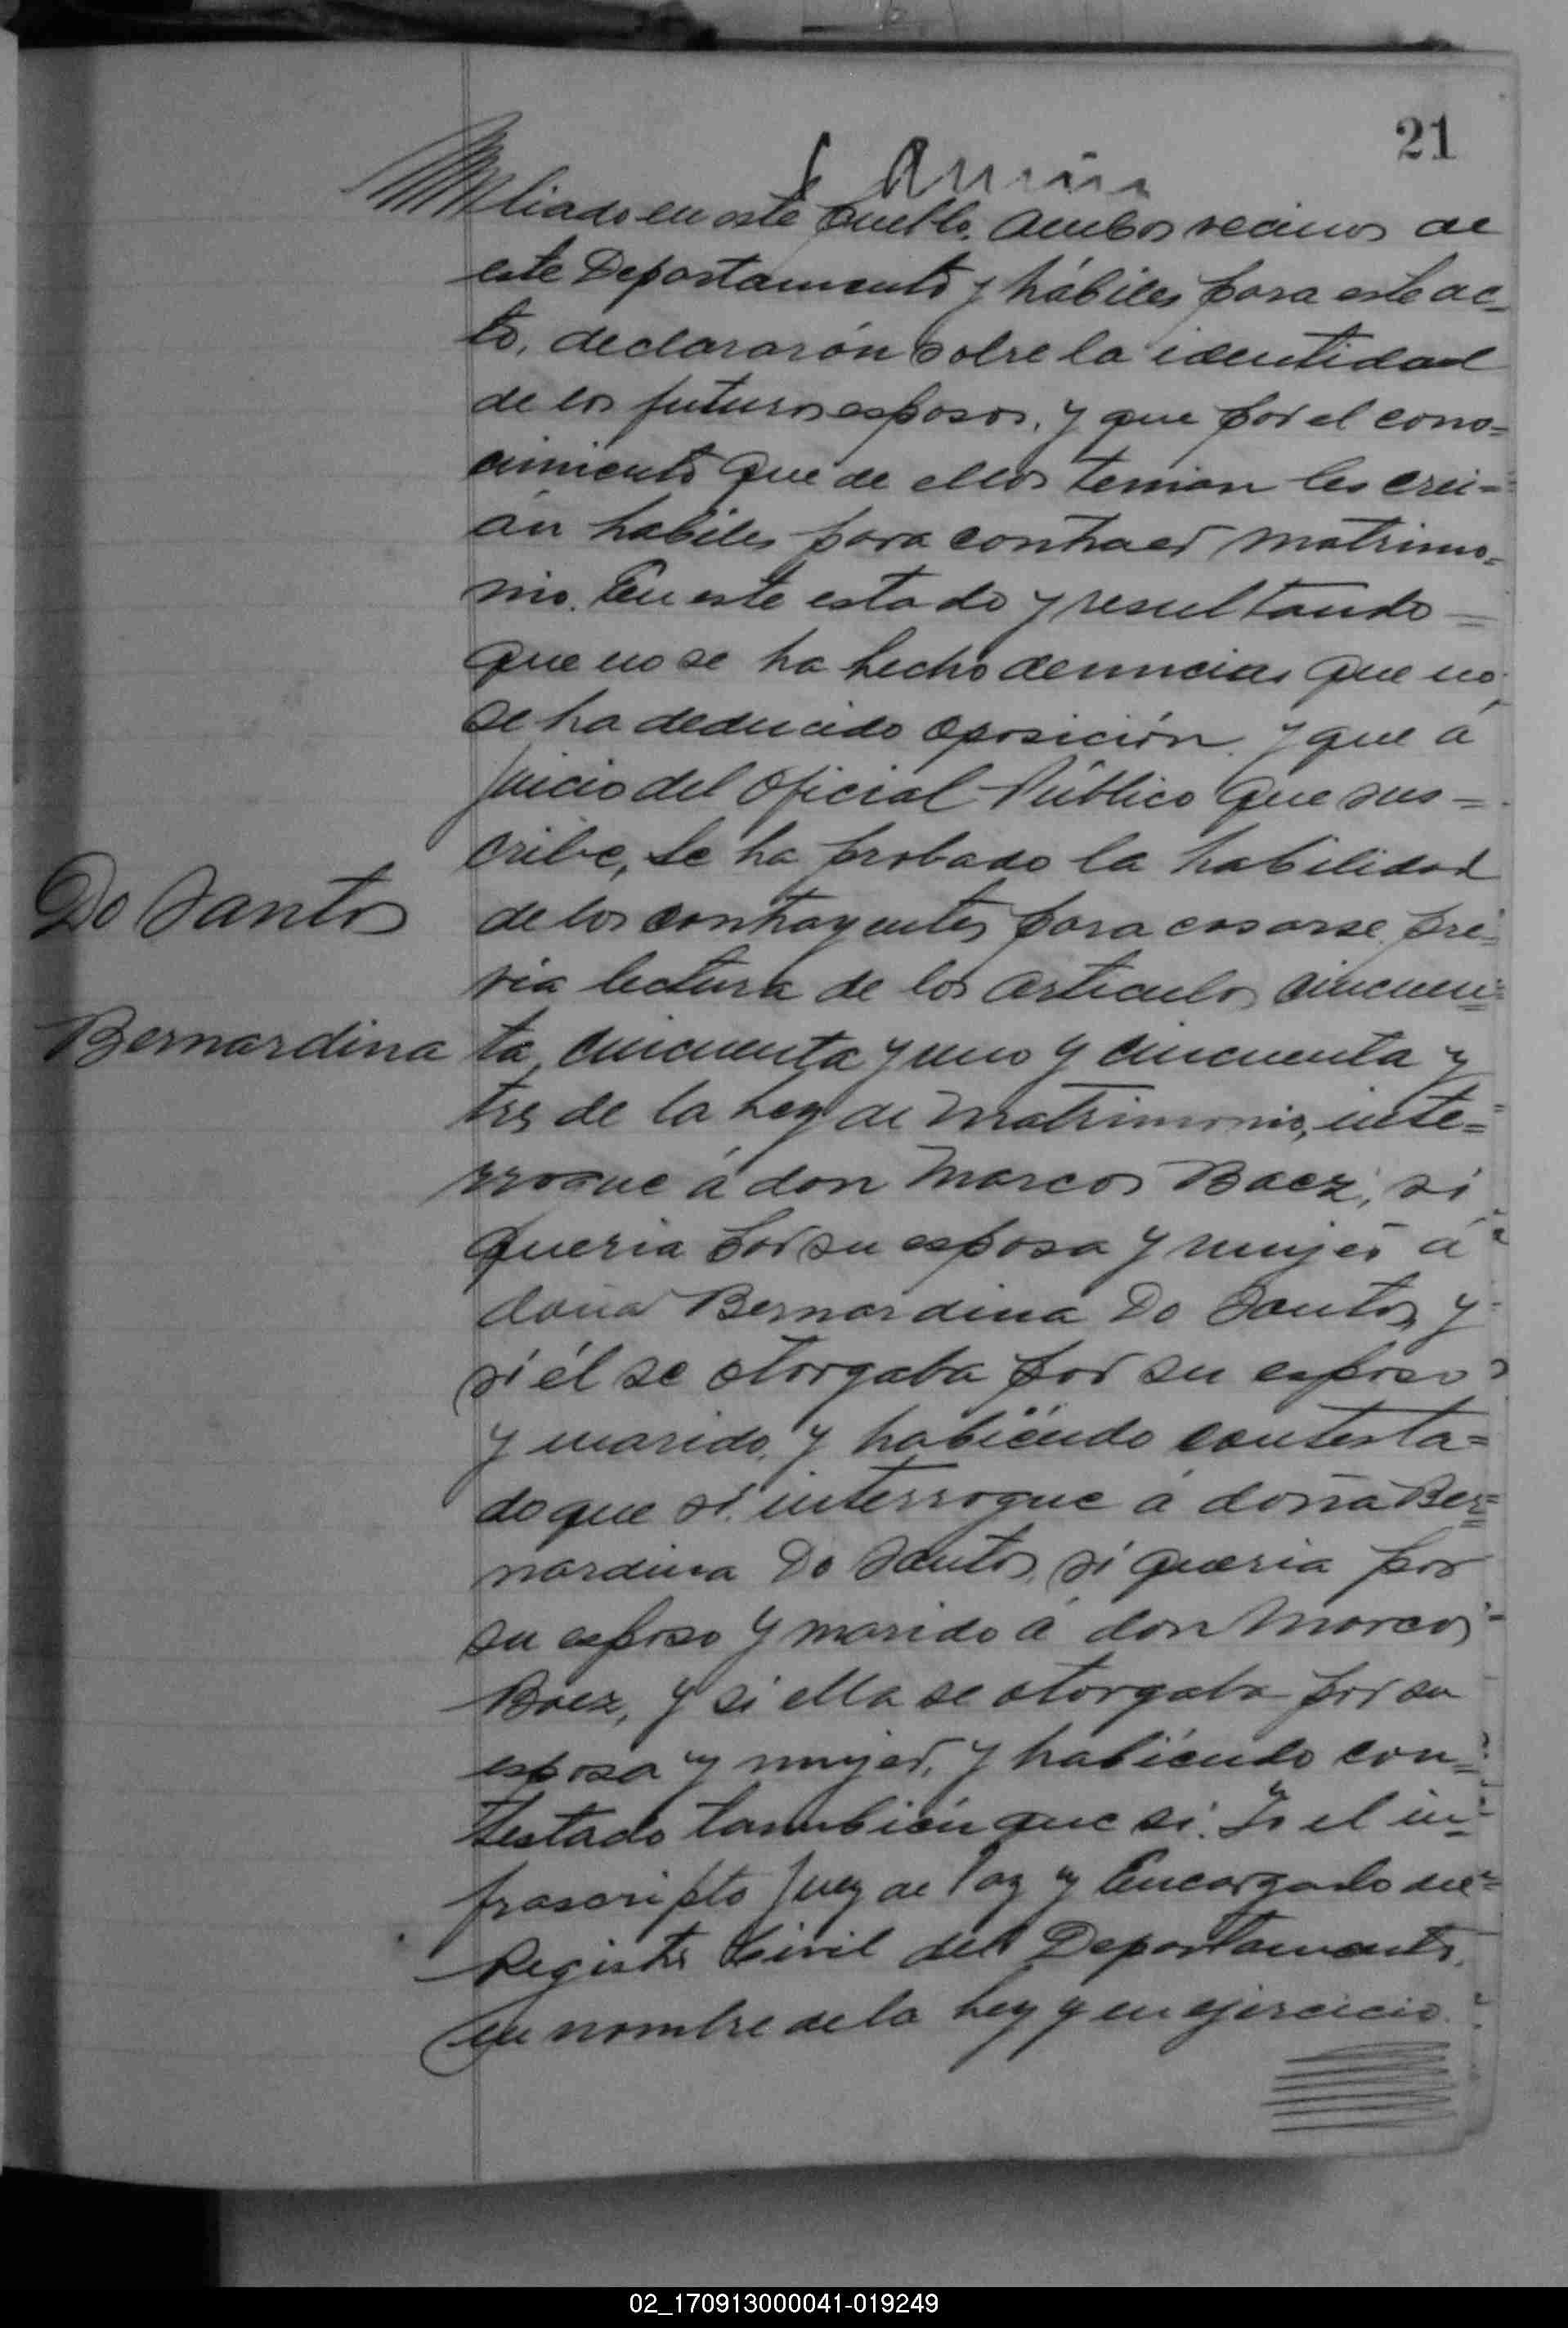 21
liado en este pueblo. Ambos vecinos de
este Departamento y hábiles para este ac-
to, declararón sobre la identidad
de los futuros esposos, y que por el cono=
cimiento que de ellos tenian les crei=
an habiles para contraer matrimo=
nio. En este estado y resultando =
que no se ha hecho denuncias que no
se ha deducido oposición, y que á
juicio del Oficial Público que sus=
cribe, se ha probado la habilidad
Do Santos
de los contrayentes para casarse, pré=
via lectura de los articulos cincuen=
Bernardina
ta, cincuenta y uno y cincuenta y
tres de la Ley de Matrimonio, inte=
rrogue á don Marcos Baez, si
queria por su esposa y mujer á
doña Bernardina Do Santos, y
si él se otorgaba por su esposo
y marido, y habiéndo contesta=
do que si, interrogue á doña Ber=
nardina Do Santos, si queria por
su esposo y marido á don Marcos
Baez, y si ella se otorgaba por su
esposa y mujer, y habiéndo con=
testado también que si. Yo el in=
frascripto Juez de Paz y Encargado del
Registro Civil del Departamento,
en nombre de la Ley y en ejercicio
02_170913000041-019249